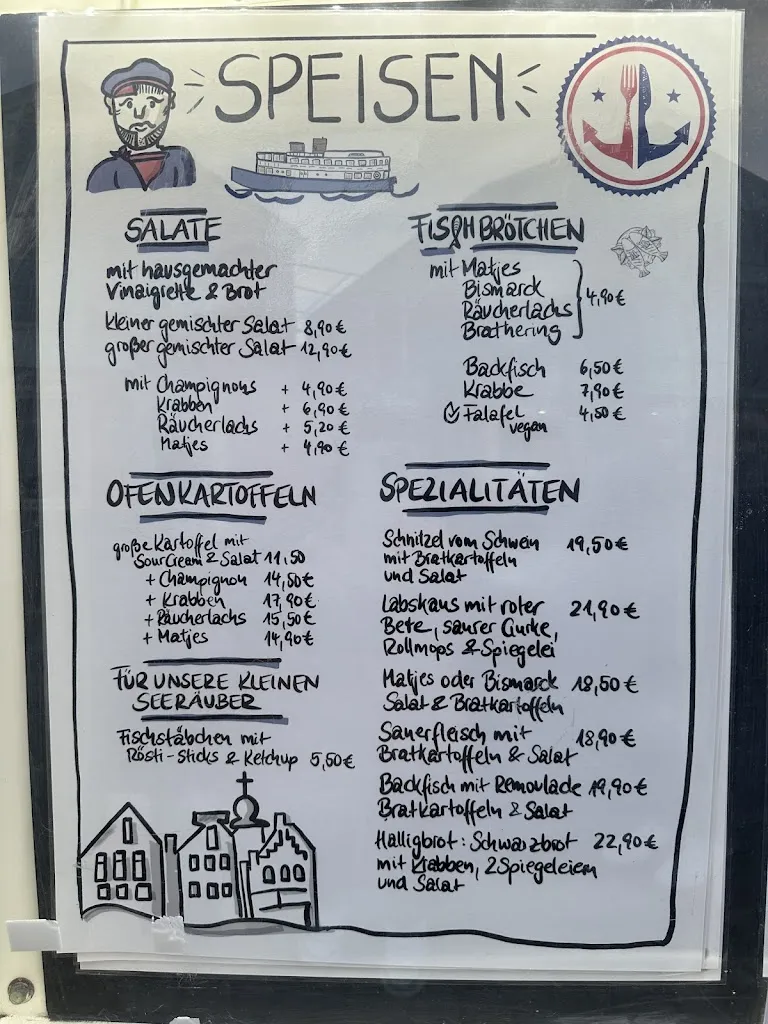 SPEISEN
SALATE
mit hausgemachter
Vinaigrette & Brot
kleiner gemischter Salat 8,90€
großer gemischter Salat 12,90€
mit Champignons + 4,90€
Krabben + 6,90€
Räucherlachs + 5,20€
Matjes + 4,90€
OFENKARTOFFELN
große Kartoffel mit
SourCream & Salat 11,50
+ Champignon 14,50€
+ Krabben 17,90€
+ Räucherlachs 15,50€
+ Matjes 14,90€
FÜR UNSERE KLEINEN
SEERÄUBER
Fischstäbchen mit
Rösti-Sticks & Ketchup 5,50€
FISCHBRÖTCHEN
mit Matjes
Bismarck
Räucherlachs
Brathering
4,90€
Backfisch 6,50€
Krabbe 7,90€
Falafel 4,50€
vegan
SPEZIALITÄTEN
Schnitzel vom Schwein 19,50€
mit Bratkartoffeln
und Salat
Labskaus mit roter 21,90€
Bete, saurer Gurke,
Rollmops & Spiegelei
Matjes oder Bismarck 18,50€
Salat & Bratkartoffeln
Sauerfleisch mit 18,90€
Bratkartoffeln & Salat
Backfisch mit Remoulade 19,90€
Bratkartoffeln & Salat
Halligbrot: Schwarzbrot 22,90€
mit Krabben, 2 Spiegeleiern
und Salat